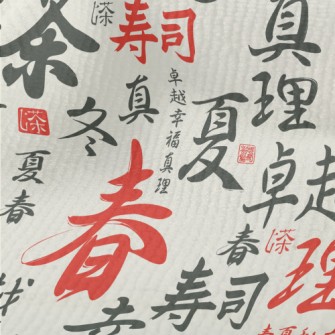 茶
茶
寿司
真
真
理
卓越幸福真理
茶
冬
夏
卓
夏
春
春
茶
春
寿司
理